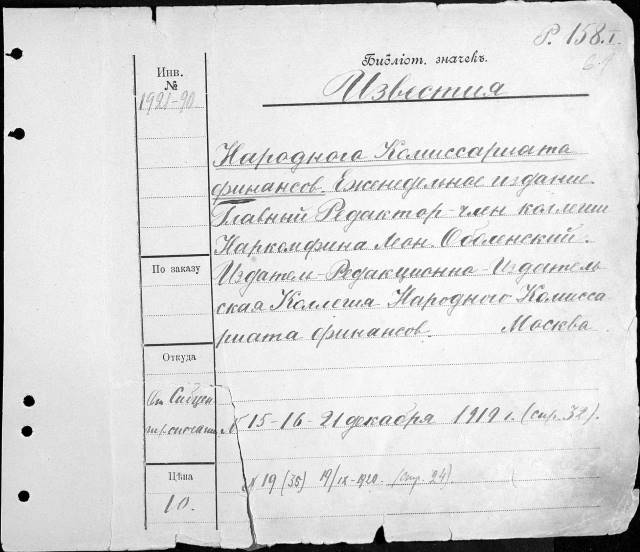 Р. 158.I
Библіот. значекъ.
Известия
Инв.
№
1921-90
Народного Комиссариата
финансов. Еженедельное издание.
Главный Редактор-член коллегии
Наркомфина Леон. Оболенский.
По заказу
Издатель-Редакционно-Издатель
ская Коллегия Народного Комисса
риата финансов. Москва
Откуда
От
№ 15-16-21 декабря 1919 г. (стр. 32).
Цѣна
10.
№ 19 (35) 19/IX-1920. (стр. 24).